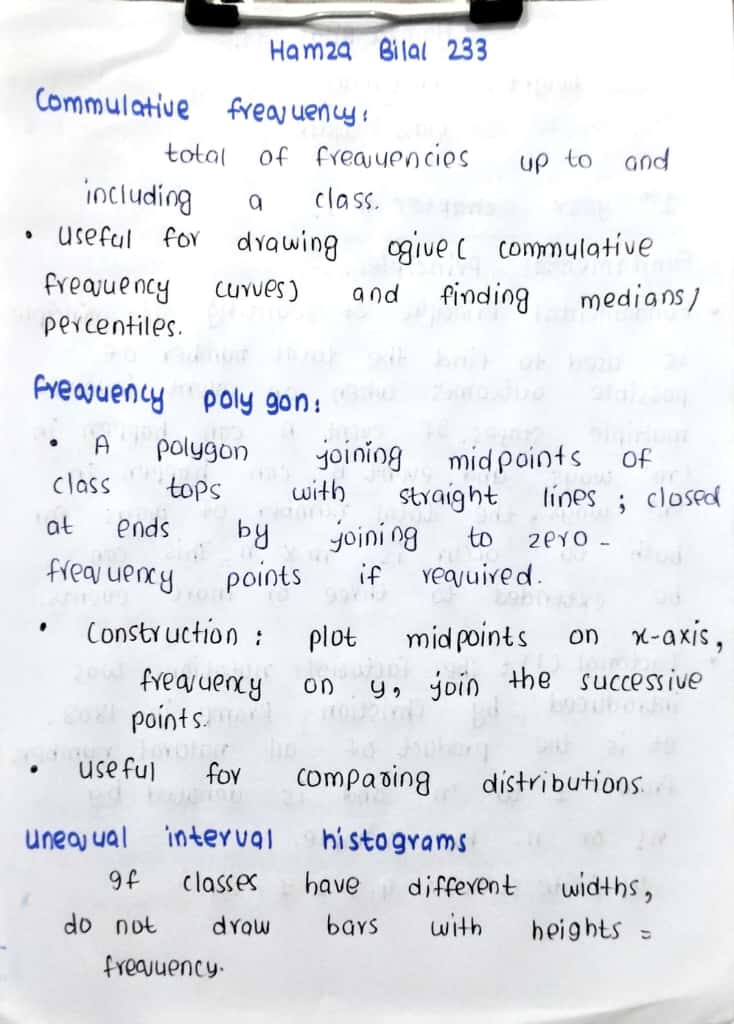 Hamza Bilal 233
Commulative frequency:
total of frequencies up to and
including a class.
• useful for drawing ogive ( commulative
frequency curves) and finding medians/
percentiles.
frequency poly gon:
• A polygon joining midpoints of
class tops with straight lines ; closed
at ends by joining to zero -
frequency points if required.
• Construction : plot midpoints on x-axis,
frequency on y, join the successive
points.
• useful for comparing distributions.
unequal interval histograms
If classes have different widths,
do not draw bars with heights =
frequency.